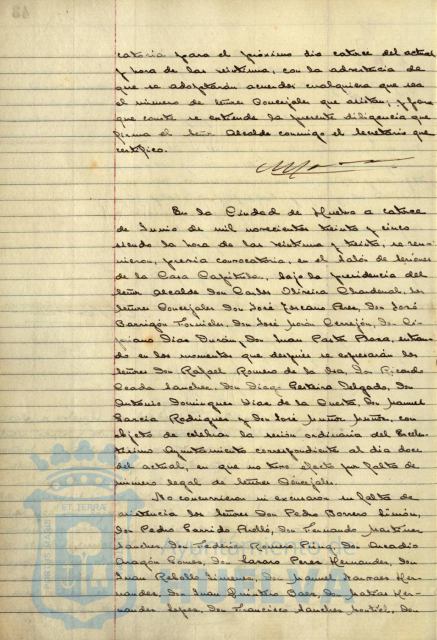 catoria para el próximo dia catorce del actual
y hora de las veintiuna, con la advertencia de
que se adoptarán acuerdos cualquiera que sea
el número de Señores Concejales que asistan; y para
que conste se extiende la presente diligencia que
firma el Señor Alcalde conmigo el Secretario que
certifico.
En la Ciudad de Huelva a catorce
de Junio de mil novecientos treinta y cinco
siendo la hora de las veintiuna y treinta, se reu-
nieron, previa convocatoria, en el Salón de Sesiones
de la Casa Capitular, bajo la presidencia del
Señor Alcalde Don Carlos Oliveira Chardenal, los
Señores Concejales Don José Toscano Perez, Don José
Barrigón Fornieles, Don José Morón Cerrejón, Don Ci-
priano Dias Durán, Don Juan Pastó Rosa, entran-
do en los momentos que después se expresarán los
Señores Don Rafael Romero de la Osa, Don Ricardo
Sanchez, Don Diego Delgado, Don
Antonio Dominguez de la Cuesta, Don Manuel
Garcia Rodriguez y Don José Muñoz Muñoz, con
objeto de celebrar la sesión ordinaria del Excelen-
tísimo Ayuntamiento correspondiente al dia doce
del actual, en que no tuvo efecto por falta de
número legal de Señores Concejales.
No concurrieron ni excusaron su falta de
asistencia los Señores Don Pedro Borrero Limón,
Don Pedro Garrido Perelló, Don Fernando Martinez
Sanchez, Don Federico Romero Puig, Don Arcadio
Aragón Gomez, Don Lazaro Perez Hernandez, Don
Juan Rebollo Jimenez, Don Manuel Narvaez Her-
nandez, Don Juan Quintero Baez, Don Matias Her-
nandez Lopez, Don Francisco Sanchez, Don